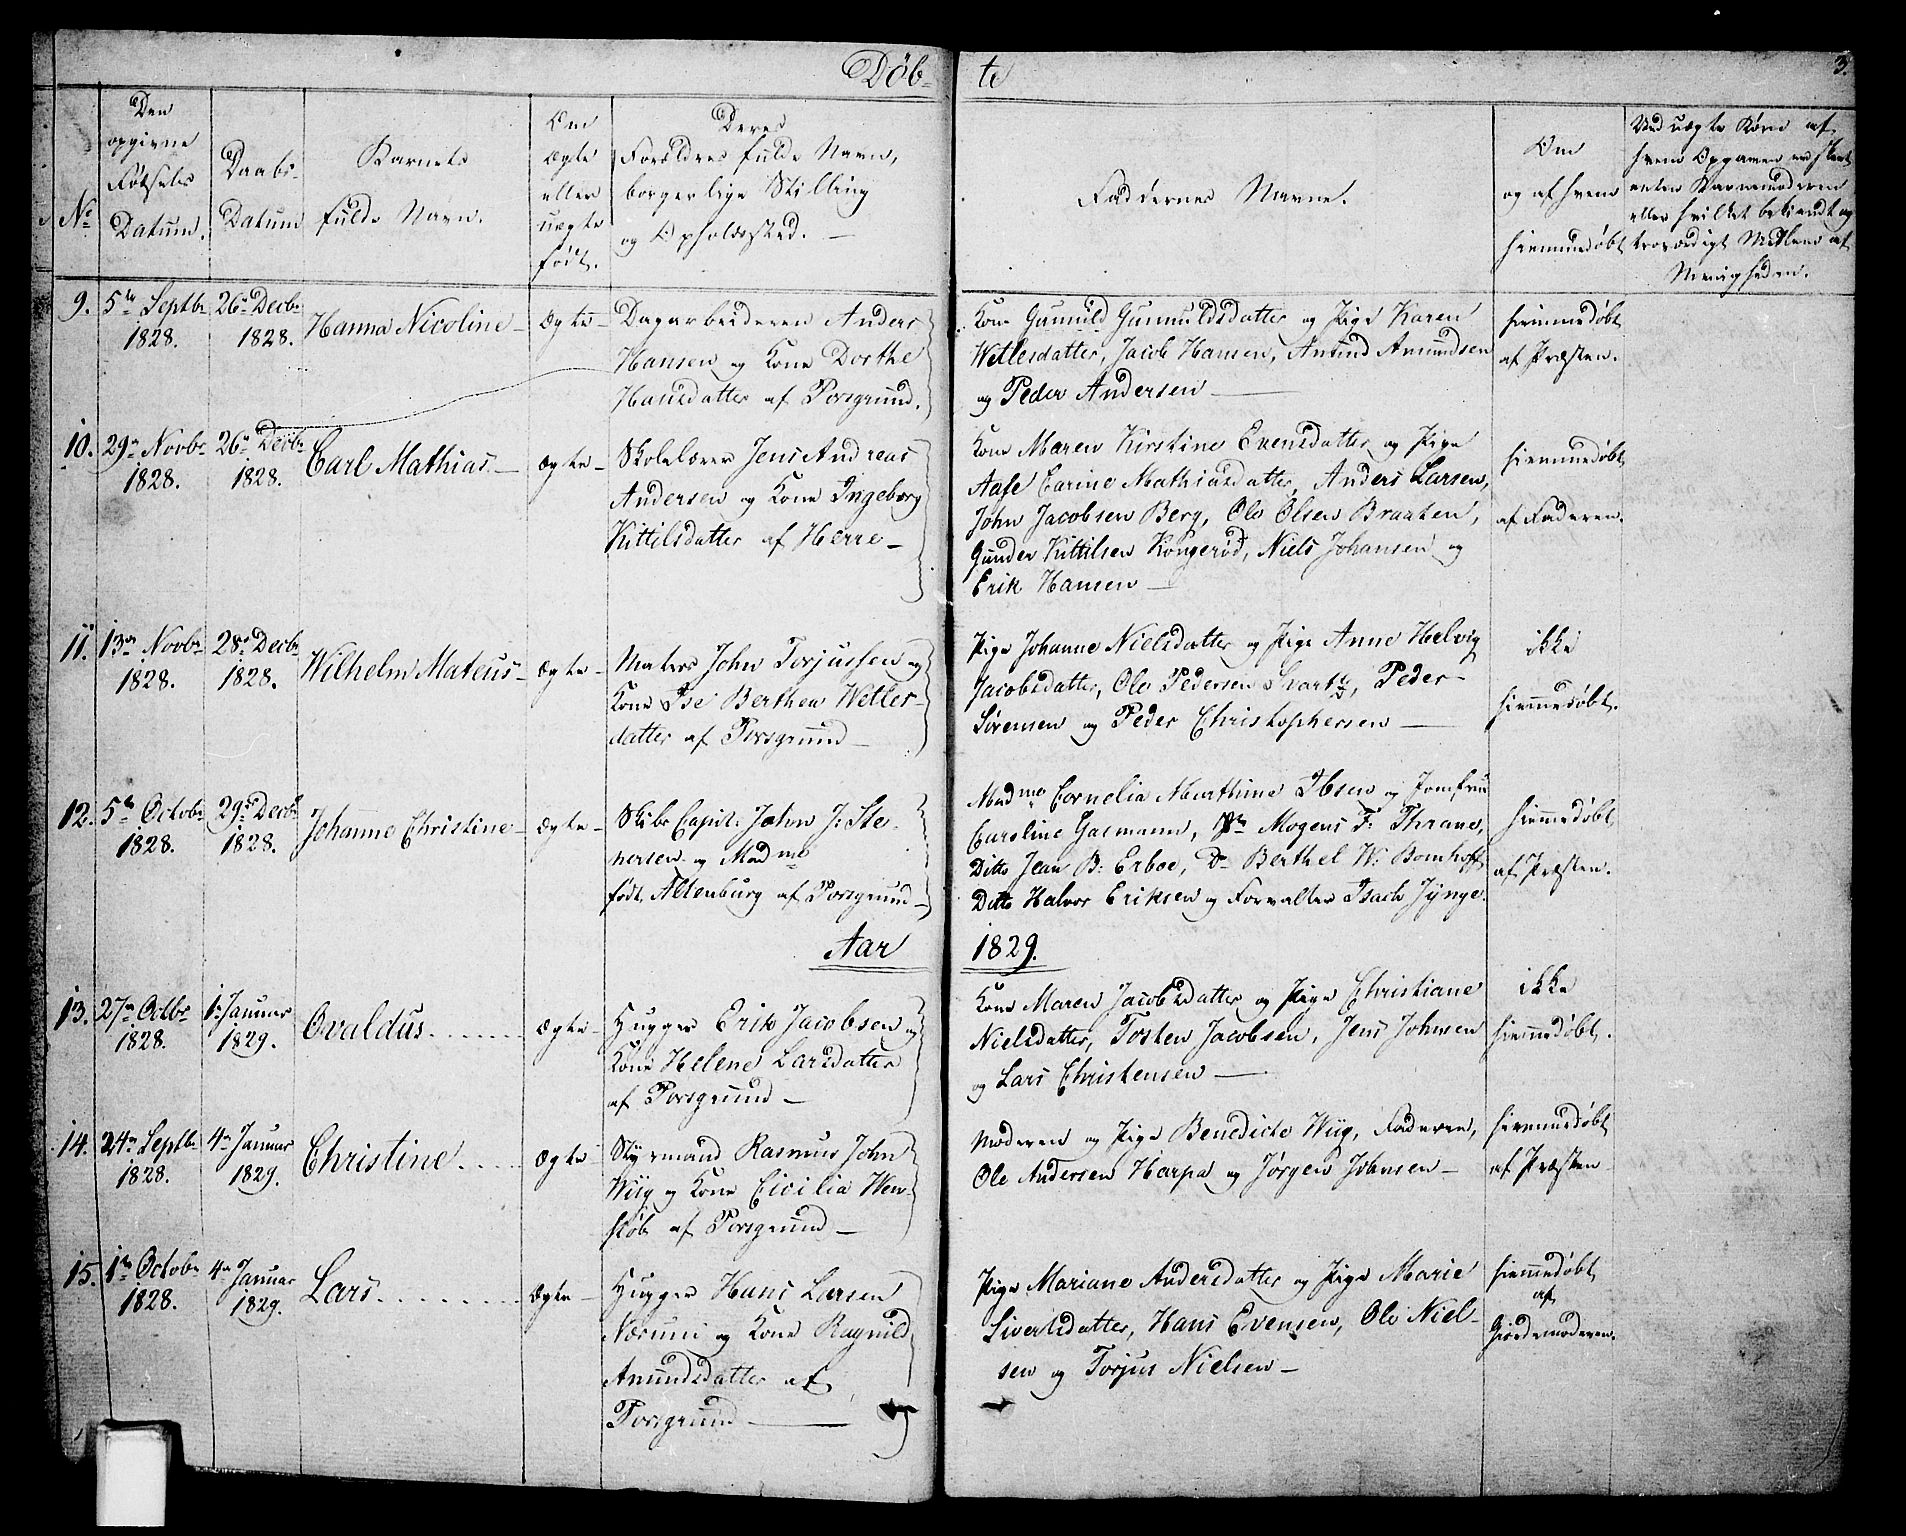 Døb-
te
3.
No
Den opgivne Fødsels Datum.
Daabs-Datum
Barnets fulde Navn.
Om ægte eller uægte født.
Deres Forældres fulde Navn, borgerlige Stilling og Opholdssted. —
Faddernes Navne.
Om og af hvem hiemmedøbt
Ved uægte Børn af hvem Opgaven er skeet enten Barnemoderen eller hvilket bekiendt og troværdigt Medlem af Menigheden.
9. 5te Septbr 1828. 26de Decbr 1828. Hanna Nicoline — Ægte —
Dagarbeideren Anders
Hansen og Kone Dorthe
Hansdatter af Porsgrund.
Kone Gunnild Gunnuldsdatter og Pige Karen
Wetlesdatter, Jacob Hansen, Amund Amundsen
og Peder Andersen —
hiemmedøbt
af Præsten.
10. 29de Novbr 1828. 26de Decbr 1828. Carl Mathias. — Ægte —
Skolelærer Jens Andreas
Andersen og Kone Ingeborg
Kittilsdatter af Herre —
Kone Maren Kirstine Evensdatter og Pige
Aase Carine Mathiasdatter, Anders Larsen,
John Jacobsen Berg, Ole Olsen Braaten,
Gunder Kittilsen Kongerød, Niels Johansen og
Erik Hansen —
hiemmedøbt
af Faderen.
11. 13de Novbr 1828. 28de Decbr 1828. Wilhelm Mateus — Ægte —
Matros John Torjussen og
Kone Ise Berthea Wetles-
datter af Porsgrund —
Pige Johanne Nielsdatter og Pige Anne Helvig
Jacobsdatter, Ole Pedersen, Peder
Sørensen og Peder Christophersen —
ikke
hiemmedøbt.
12. 5te Octobr 1828. 29de Decbr 1828. Johanne Christine — Ægte —
Skibs Capit: John J: Ste-
nersen og Madme
født Altenburg af Porsgrund —
Madme Cornelia Marthine Ibsen og Jomfru
Caroline Gasmann, Mogens F: Thrane,
Ditto Jean B: Erboe, Do Berthel W: Bomhoff,
Ditto Halvor Eriksen og Forvalter Isach Jynge.
hiemmedøbt
af Præsten.
Aar 1829.
13. 27de Octbr 1828. 1te Januar 1829. Ovaldus. Ægte —
Hugger Erik Jacobsen og
Kone Helene Larsdatter
af Porsgrund —
Kone Maren Jacobsdatter og Pige Christiane
Nielsdatter, Tosten Jacobsen, Jens Johnsen
og Lars Christensen —
ikke
hiemmedøbt.
14. 24de Septbr 1828. 4de Januar 1829. Christine. Ægte
Styrmand Rasmus John
Wiig og Kone Cicilia Wen-
støb af Porsgrund —
Moderen og Pige Benedicte Wiig, Faderen,
Ole Andersen Harpa og Jørgen Johnsen —
hiemmedøbt
af Præsten
15. 1te Octobr 1828. 4de Januar 1829. Lars. Ægte —
Hugger Hans Larsen
Næruni og Kone Ragnild
Amundsdatter af
Porsgrund —
Pige Mariane Andersdatter og Pige Marie
Sivertsdatter, Hans Evensen, Ole Niel-
sen og Torjus Nielsen —
hiemmedøbt
af
Giordemoderen.